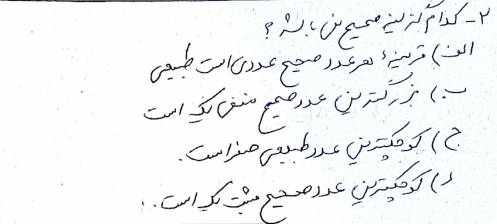 ۲- کدام گزینه صحیح می باشد؟
الف) قرینهٔ هر عدد صحیح عددی است طبیعی
ب) بزرگترین عدد صحیح منفی یک است
ج) کوچکترین عدد طبیعی صفر است.
د) کوچکترین عدد صحیح مثبت یک است.